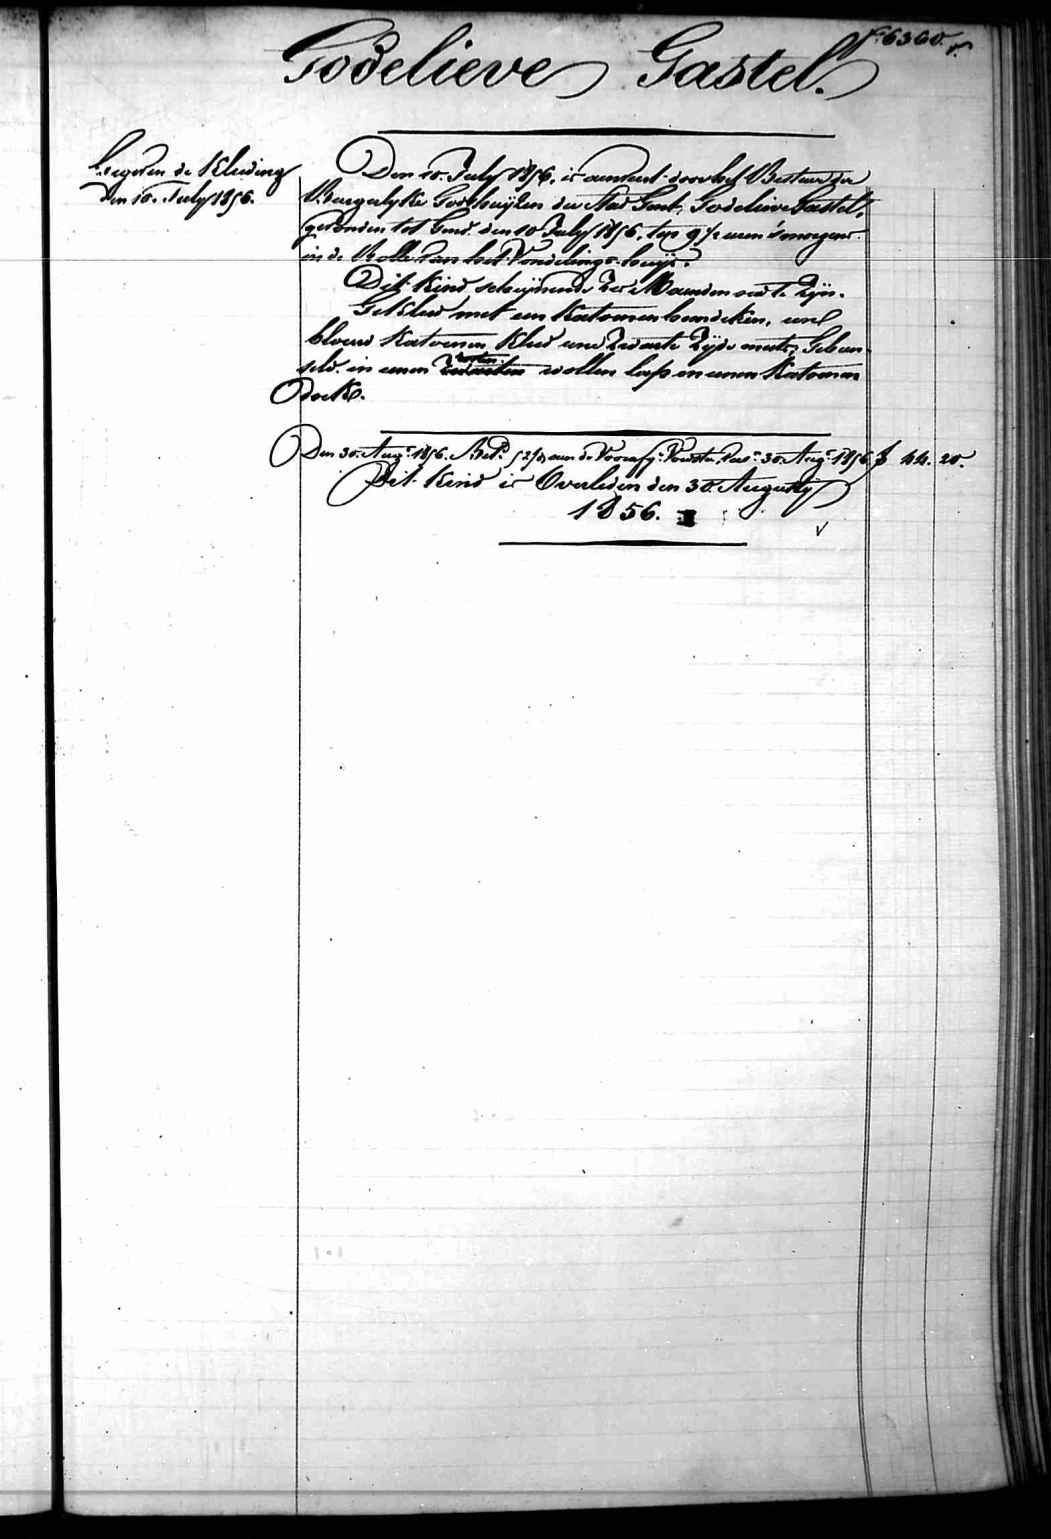 f° 6360. v.
Godelieve Gastel.
Begeven de Kleding
den 10. July 1856.
Den 10. July 1856, is aanveerd door het Bestuur der
Burgerlyke Godshuyzen der Stad Gent, Godelieve Gastel,
gevonden tot Gend. den 10 July 1856, ten 9 1/2 uren 's morgens
in de Rolle van het Vondelings-huys.
Dit kind schynende zes Maenden oud te zyn.
Gekleed met een katoenen hemdeken, een
blouw katoenen kleed eene zwarte zyde muts, Gebun-
seld in eenen wollen lap en eenen katoenen
doek.
Den 30. Augt. 1856. Bet. aen de Voorsz. tot 30. Augt. 1856 f 44. 20.
Dit Kind is Overleden den 30. Augusty
1856.